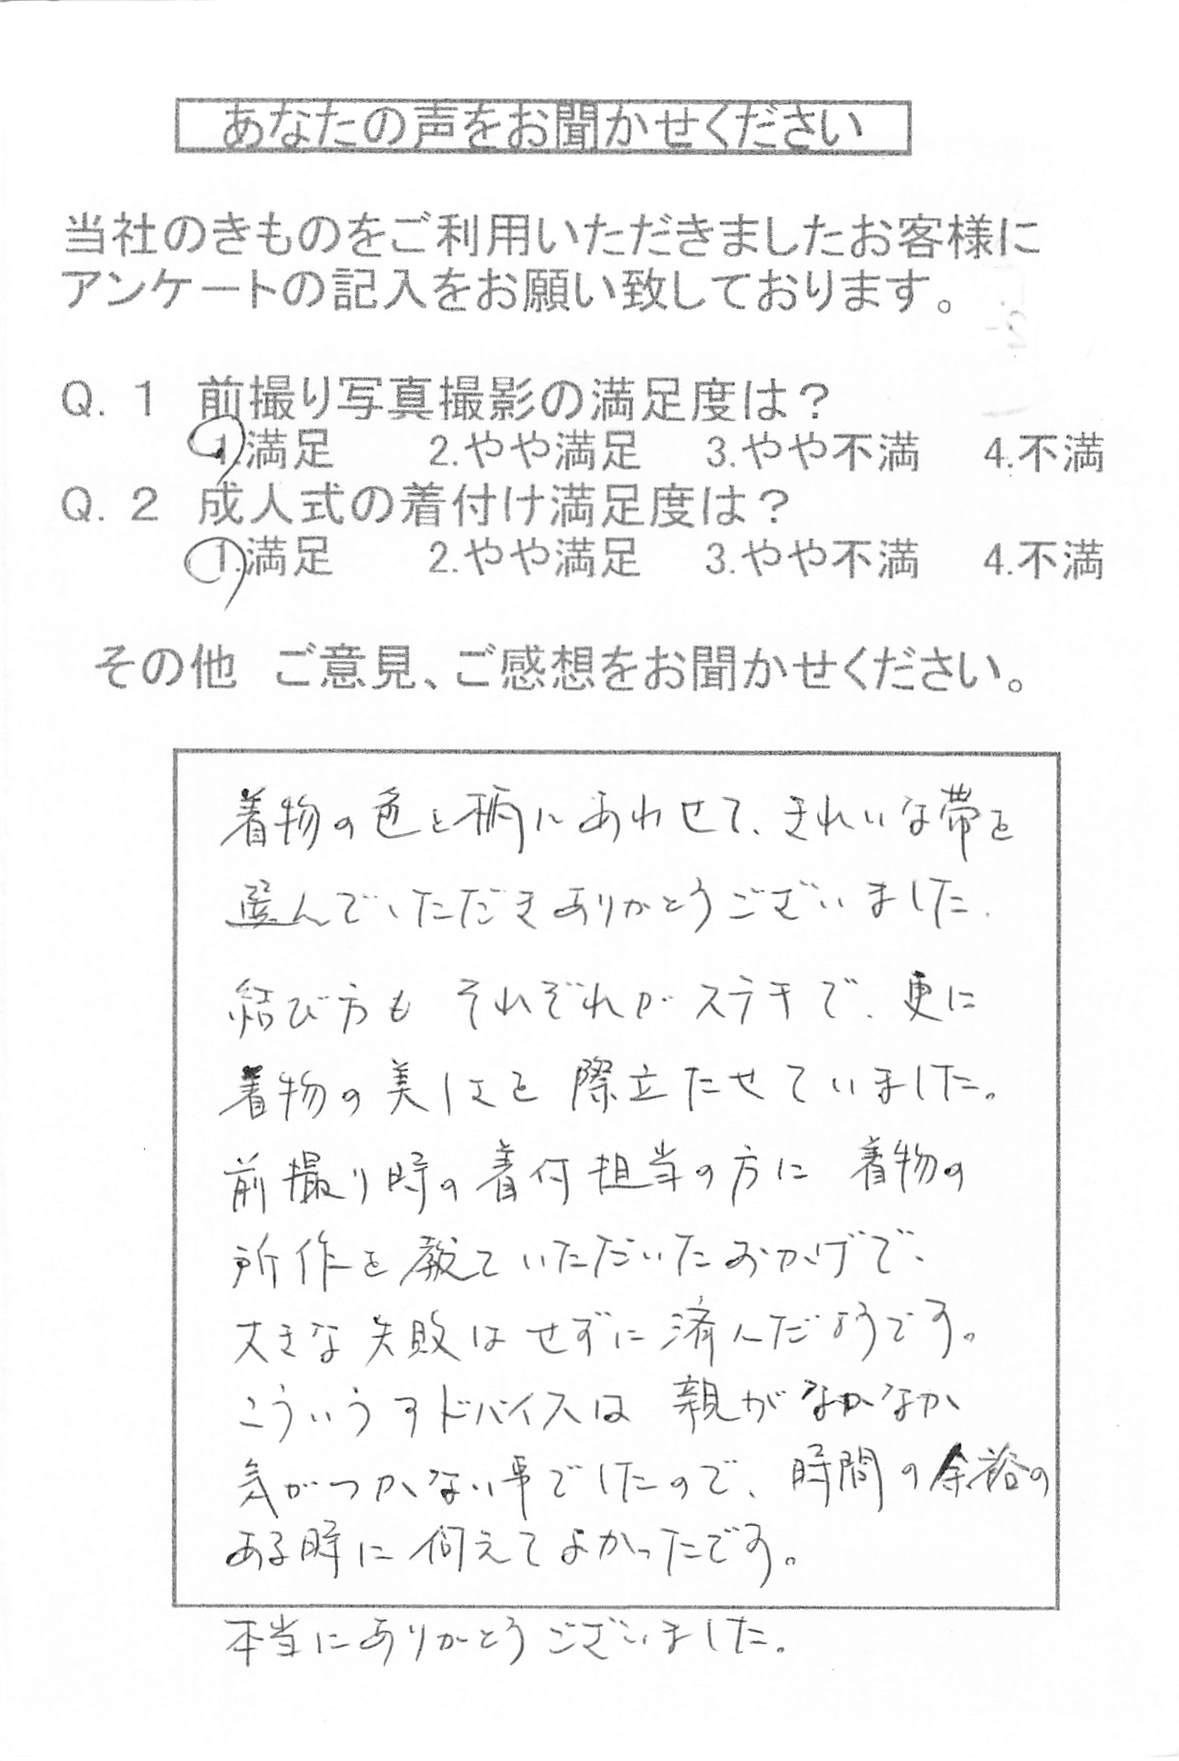 あなたの声をお聞かせください
当社のきものをご利用いただきましたお客様に
アンケートの記入をお願い致しております。
Q.1 前撮り写真撮影の満足度は？
1.満足 2.やや満足 3.やや不満 4.不満
Q.2 成人式の着付け満足度は？
1.満足 2.やや満足 3.やや不満 4.不満
その他 ご意見、ご感想をお聞かせください。
着物の色と柄にあわせて、きれいな帯を
選んでいただきありがとうございました。
結び方も それぞれが ステキで、更に
着物の美しさを 際立たせていました。
前撮り時の着付担当の方に 着物の
所作を教えていただいたおかげで、
大きな失敗はせずに済んだようです。
こういうアドバイスは 親がなかなか
気がつかない事でしたので、時間の余裕の
ある時に 伺えてよかったです。
本当にありがとうございました。